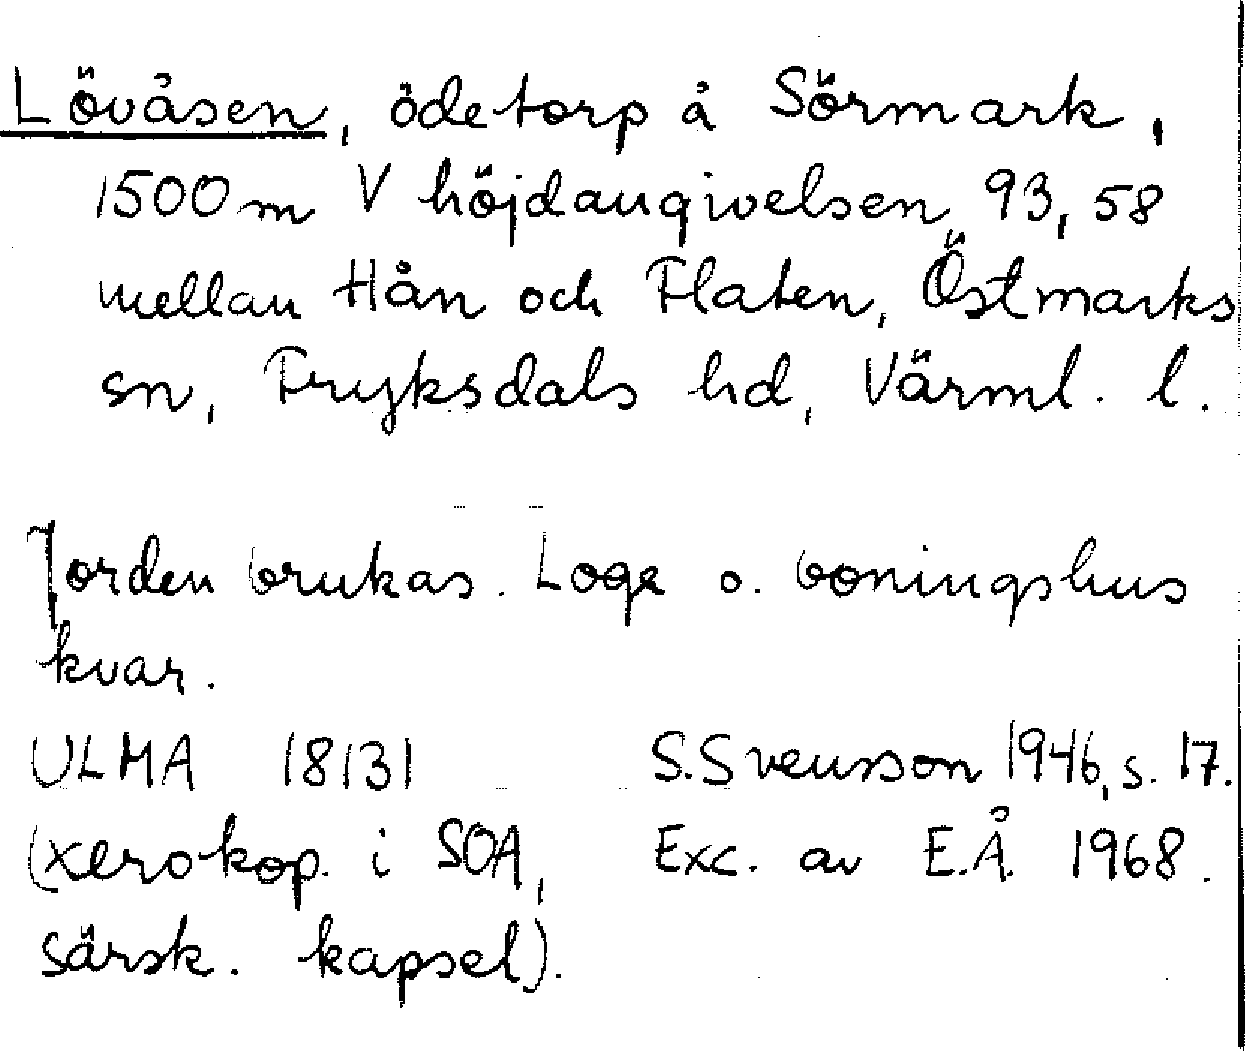 Lövåsen, ödetorp å Sörmark,
1500 m V höjdangivelsen 93,58
mellan Hån och Flaten, Östmarks
sn, Fryksdals hd, Värml. l.
Jorden brukas. Loge o. boningshus
kvar.
ULMA 18131 S.Svensson 1946, s. 17.
(xerokop. i SOA, Exc. av E.Å. 1968.
särsk. kapsel).